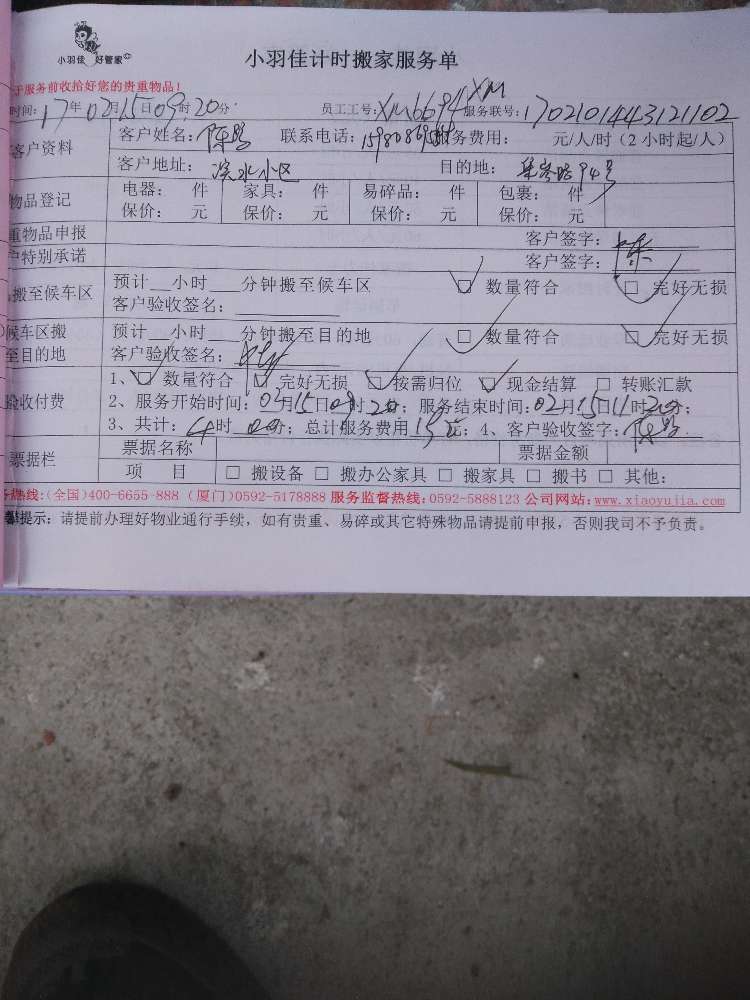 小羽佳 好管家
小羽佳计时搬家服务单
于服务前收拾好您的贵重物品!
时间: 17年02月15日09时20分 员工工号: XM6694 服务联号: XM170210144312 1102
客户资料 客户姓名: 陈 联系电话: 服务费用: 元/人/时 (2小时起/人)
客户地址: 滨水小区 目的地: 集岑路94号
物品登记 电器: 件 家具: 件 易碎品: 件 包裹: 件
保价: 元 保价: 元 保价: 元 保价: 元
重物品申报 客户签字:
户特别承诺 客户签字: 陈
搬至候车区 预计__小时___分钟搬至候车区 □ 数量符合 □ 完好无损
客户验收签名:
候车区搬 预计__小时___分钟搬至目的地 □ 数量符合 □ 完好无损
至目的地 客户验收签名:
验收付费 1、□ 数量符合 □ 完好无损 □ 按需归位 □ 现金结算 □ 转账汇款
2、服务开始时间: 02月15日09时20分; 服务结束时间: 02月15日11时20分;
3、共计: 4时00分; 总计服务费用 元; 4、客户验收签字: 陈
票据栏 票据名称 票据金额
项 目 □ 搬设备 □ 搬办公家具 □ 搬家具 □ 搬书 □ 其他:
务热线:(全国)400-6655-888 (厦门)0592-5178888 服务监督热线:0592-5888123 公司网站:www.xiaoyujia.com
馨提示: 请提前办理好物业通行手续, 如有贵重、易碎或其它特殊物品请提前申报, 否则我司不予负责。